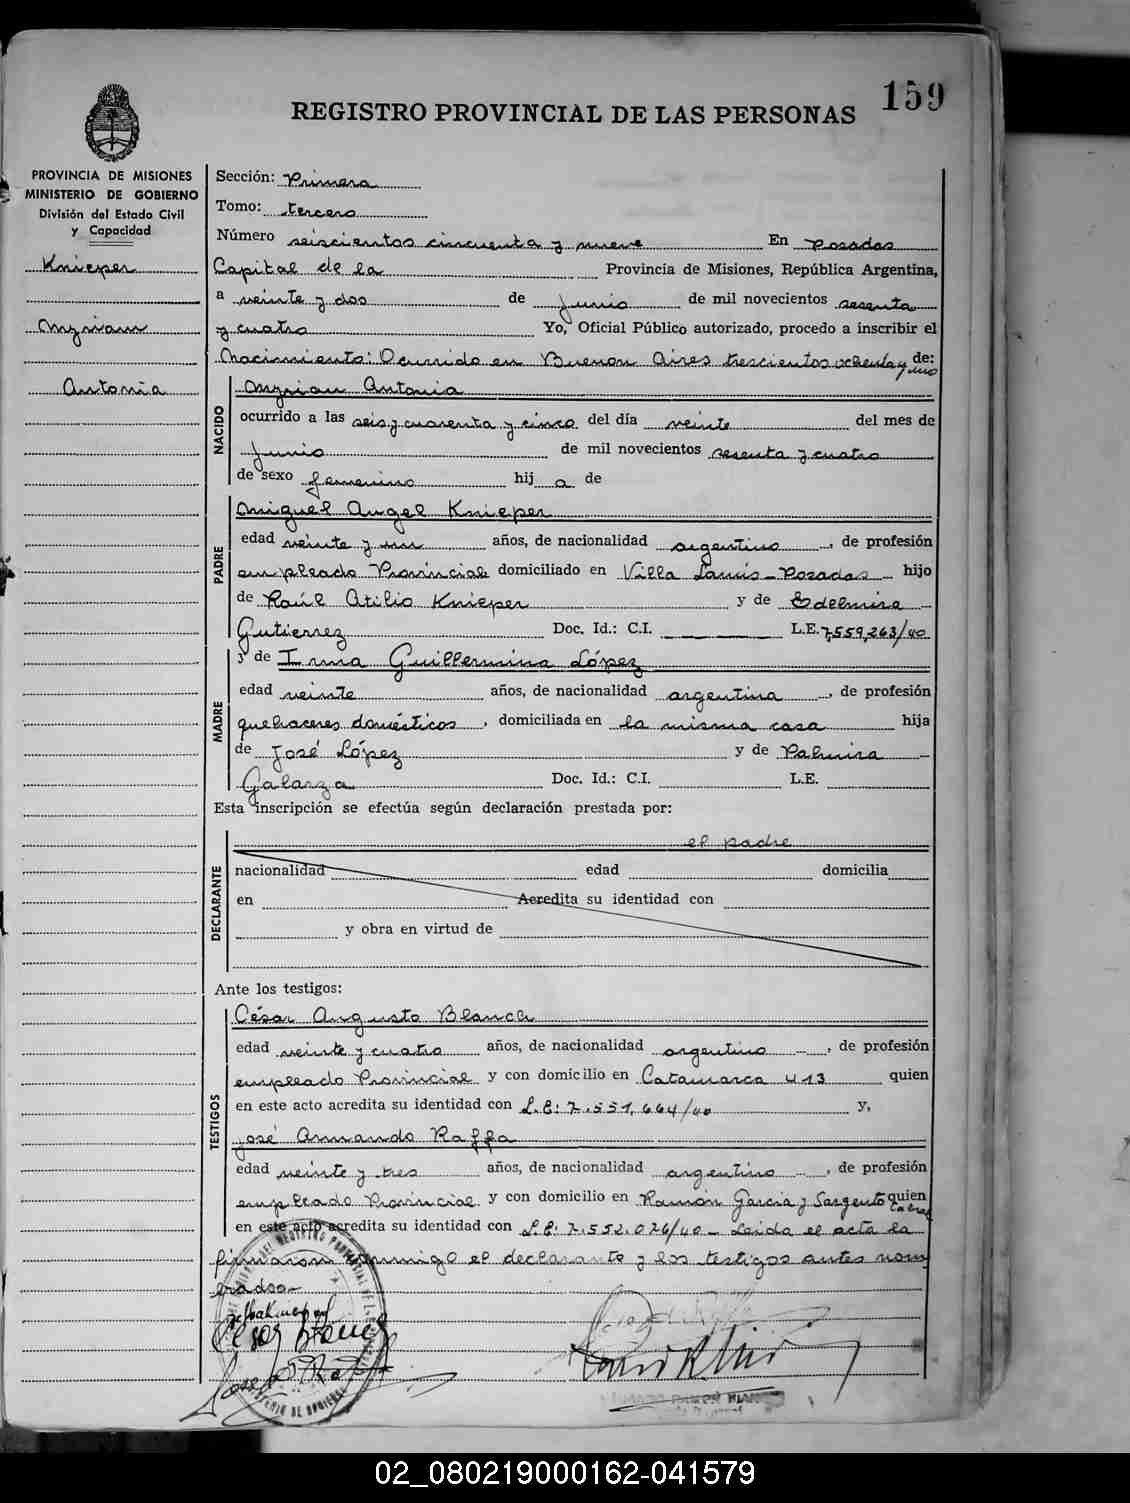 159
REGISTRO PROVINCIAL DE LAS PERSONAS
PROVINCIA DE MISIONES
MINISTERIO DE GOBIERNO
División del Estado Civil
y Capacidad
Knieper
Myriam
Antonia
Sección: Primera
Tomo: tercero
Número seiscientos cincuenta y nueve En Posadas
Capital de la Provincia de Misiones, República Argentina,
a veinte y dos de junio de mil novecientos sesenta
y cuatro Yo, Oficial Público autorizado, procedo a inscribir el
Nacimiento: Ocurrido en Buenos Aires trescientos ochenta y uno de:
NACIDO
Myrian Antonia
ocurrido a las seis y cuarenta y cinco del día veinte del mes de
junio de mil novecientos sesenta y cuatro
de sexo femenino hij a de
PADRE
Miguel Angel Knieper
edad veinte y un años, de nacionalidad argentino, de profesión
empleado Provincial domiciliado en Villa Lanús - Posadas hijo
de Raúl Atilio Knieper y de Edelmira
Gutierrez Doc. Id.: C.I. L.E. 7,559,263/40
y de Irma Guillermina López
MADRE
edad veinte años, de nacionalidad argentina, de profesión
quehaceres domésticos, domiciliada en la misma casa hija
de José López y de Palmira
Galarza Doc. Id.: C.I. L.E.
Esta inscripción se efectúa según declaración prestada por:
DECLARANTE
el padre
nacionalidad edad domicilia
en Acredita su identidad con
y obra en virtud de
Ante los testigos:
TESTIGOS
César Augusto Blanca
edad veinte y cuatro años, de nacionalidad argentino, de profesión
empleado Provincial y con domicilio en Catamarca 413 quien
en este acto acredita su identidad con L.E: 7.551,664/40 y,
José Armando Raffa
edad veinte y tres años, de nacionalidad argentino, de profesión
empleado Provincial y con domicilio en Ramón Garcia y Sargento Cabral quien
en este acto acredita su identidad con L.E: 7.552.026/40 - Leida el acta la
firmaron conmigo el declarante y los testigos antes nom
brados-
Cesar Blanca
02_080219000162-041579